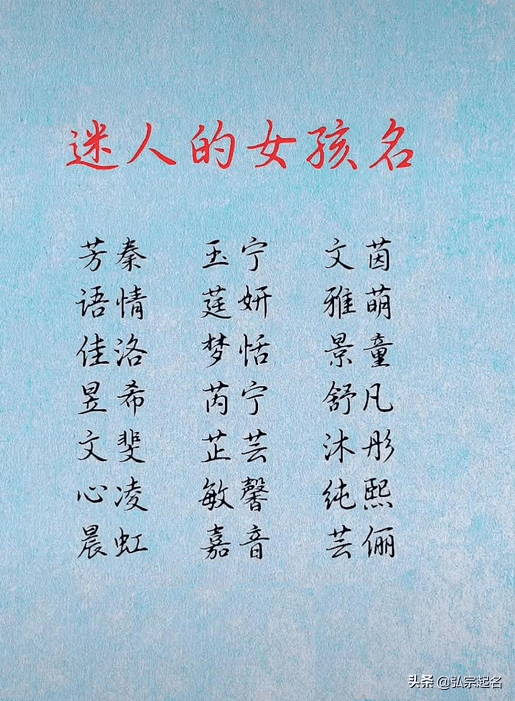 迷人的女孩名
芳秦 玉宁 文茵
语情 莛妍 雅萌
佳洛 梦恬 景童
昱希 芮宁 舒凡
文斐 芷芸 沐彤
心凌 敏馨 纯熙
晨虹 嘉音 芸俪
头条 @弘宗起名